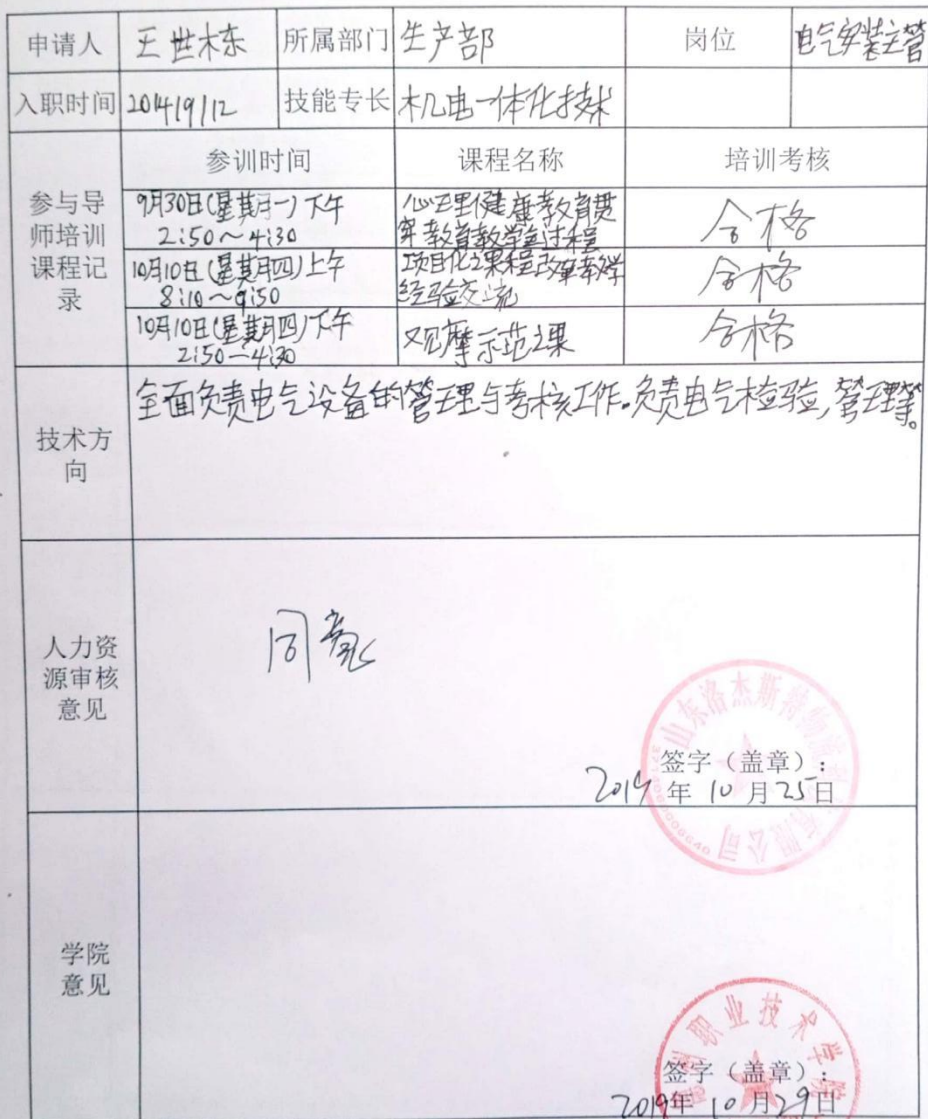 申请人 王世栋 所属部门 生产部 岗位 电气安装主管
入职时间 2014/9/12 技能专长 机电一体化技术
参与导师培训课程记录 参训时间 课程名称 培训考核
9月30日(星期一)下午
2:50～4:30
心理健康教育贯
穿教育教学全过程
合格
10月10日(星期四)上午
8:10～9:50
项目化课程改革教学
经验交流
合格
10月10日(星期四)下午
2:50—4:30
观摩示范课
合格
技术方
向
全面负责电气设备的管理与考核工作。负责电气检验,管理等。
人力资
源审核
意见
同意
山东洛杰斯特物流
有限公司
签字（盖章）：
2019年10月25日
学院
意见
职业技术学院
签字（盖章）：
2019年10月29日